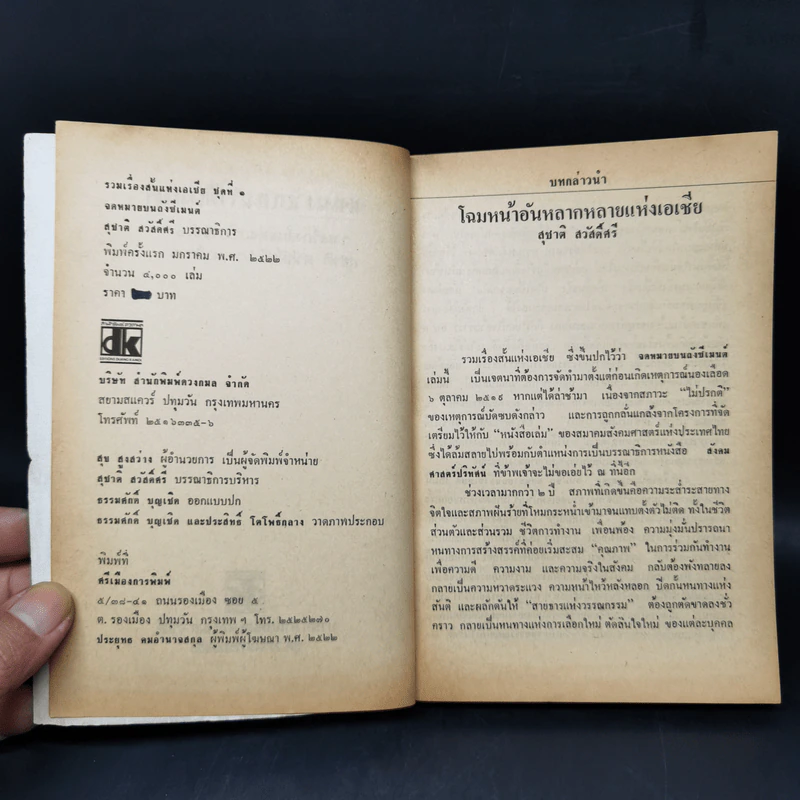 รวมเรื่องสั้นแห่งเอเชีย ชุดที่ ๑
จดหมายบนถังซีเมนต์
สุชาติ สวัสดิ์ศรี บรรณาธิการ
พิมพ์ครั้งแรก มกราคม พ.ศ. ๒๕๒๒
จำนวน ๔,๐๐๐ เล่ม
ราคา บาท
dk
บริษัท สำนักพิมพ์ดวงกมล จำกัด
สยามสแควร์ ปทุมวัน กรุงเทพมหานคร
โทรศัพท์ ๒๕๑๖๓๓๕-๖
สุข สูงสว่าง ผู้อำนวยการ เป็นผู้จัดพิมพ์จำหน่าย
สุชาติ สวัสดิ์ศรี บรรณาธิการบริหาร
ธรรมศักดิ์ บุญเชิด ออกแบบปก
ธรรมศักดิ์ บุญเชิด และประสิทธิ์ โตโพธิ์กลาง วาดภาพประกอบ
พิมพ์ที่
ศรีเมืองการพิมพ์
๕/๓๘-๔๑ ถนนรองเมือง ซอย ๕
ต. รองเมือง ปทุมวัน กรุงเทพ ฯ โทร. ๒๕๒๕๒๗๐
ประยุทธ คมอำนาจสกุล ผู้พิมพ์ผู้โฆษณา พ.ศ. ๒๕๒๒
บทกล่าวนำ
โฉมหน้าอันหลากหลายแห่งเอเชีย
สุชาติ สวัสดิ์ศรี
รวมเรื่องสั้นแห่งเอเชีย ซึ่งขึ้นปกไว้ว่า จดหมายบนถังซีเมนต์
เล่มนี้ เป็นเจตนาที่ต้องการจัดทำมาตั้งแต่ก่อนเกิดเหตุการณ์นองเลือด
๖ ตุลาคม ๒๕๑๙ หากแต่ได้ล่าช้ามา เนื่องจากสภาวะ “ไม่ปรกติ”
ของเหตุการณ์บัดซบดังกล่าว และการถูกกลั่นแกล้งจากโครงการที่จัด
เตรียมไว้ให้กับ “หนังสือเล่ม” ของสมาคมสังคมศาสตร์แห่งประเทศไทย
ซึ่งได้ล้มสลายไปพร้อมกับตำแหน่งการเป็นบรรณาธิการหนังสือ สังคม
ศาสตร์ปริทัศน์ ที่ข้าพเจ้าจะไม่ขอเอ่ยไว้ ณ ที่นี้อีก
ช่วงเวลามากกว่า ๒ ปี สภาพที่เกิดขึ้นคือความระส่ำระสายทาง
จิตใจและสภาพฝันร้ายที่โหมกระหน่ำเข้ามาจนแทบตั้งตัวไม่ติด ทั้งในชีวิต
ส่วนตัวและส่วนรวม ชีวิตการทำงาน เพื่อนพ้อง ความมุ่งมั่นปรารถนา
หนทางการสร้างสรรค์ที่ค่อยเริ่มสะสม “คุณภาพ” ในการร่วมกันทำงาน
เพื่อความดี ความงาม และความจริงในสังคม กลับต้องพังทลายลง
กลายเป็นความหวาดระแวง ความหน้าไหว้หลังหลอก ปิดกั้นหนทางแห่ง
สันติ และผลักดันให้ “สายธารแห่งวรรณกรรม” ต้องถูกตัดขาดลงชั่ว
คราว กลายเป็นหนทางแห่งการเลือกใหม่ ตัดสินใจใหม่ ของแต่ละบุคคล